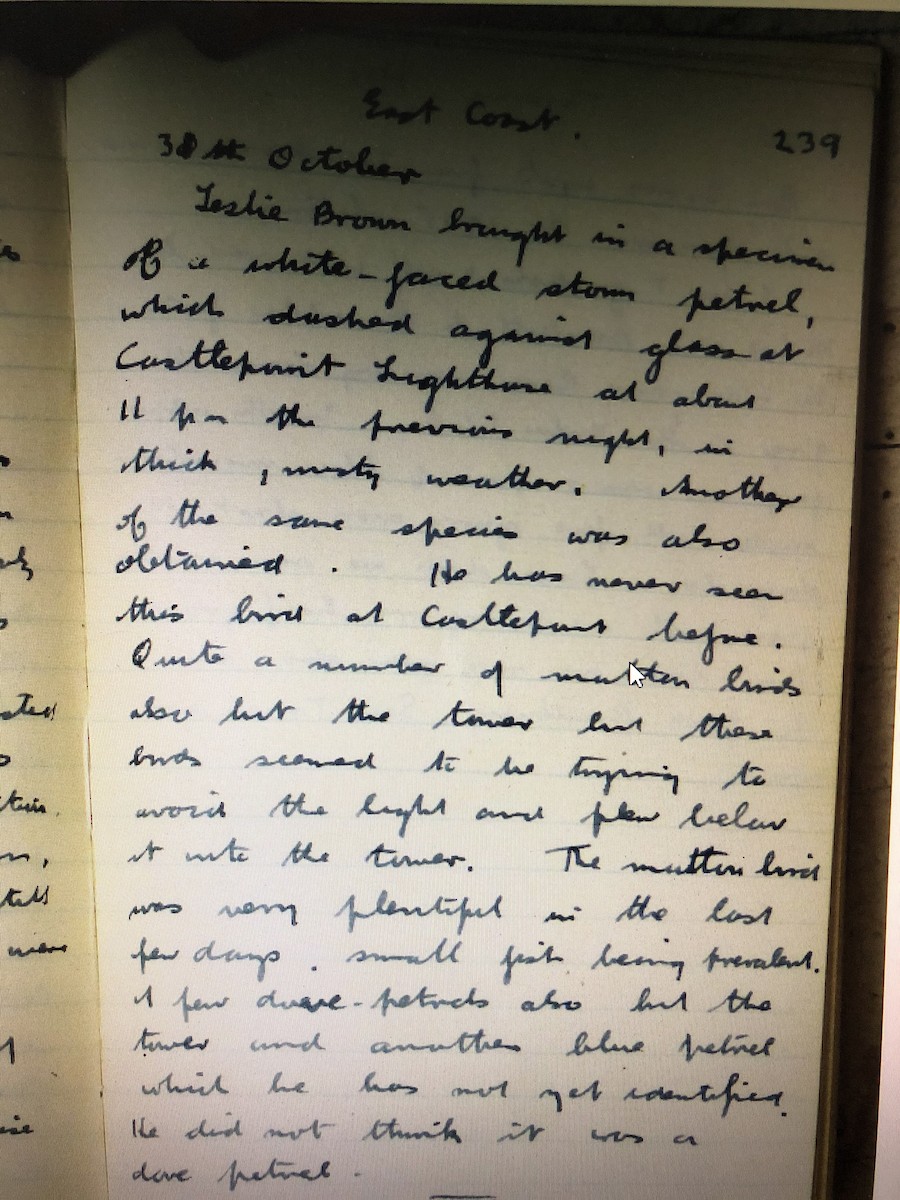 East Coast.
239
30th October
Leslie Brown brought in a specimen
of a white-faced storm petrel,
which dashed against glass at
Castlepoint Lighthouse at about
11 pm the previous night, in
thick, misty weather. Another
of the same species was also
obtained. He has never seen
this bird at Castlepoint before.
Quite a number of mutton birds
also hit the tower but these
birds seemed to be trying to
avoid the light and flew below
it into the tower. The mutton bird
was very plentiful in the last
few days, small fish being prevalent.
A few dove-petrels also hit the
tower and another blue petrel
which he has not yet identified.
He did not think it was a
dove petrel.